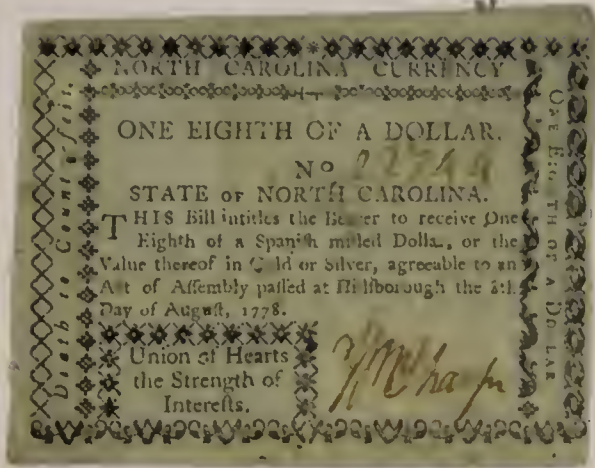 NORTH CAROLINA CURRENCY
ONE EIGHTH OF A DOLLAR.
No
STATE OF NORTH CAROLINA.
THIS Bill intitles the Bearer to receive One
Eighth of a Spanish milled Dollar, or the
Value thereof in Gold or Silver, agreeable to an
Act of Assembly passed at Hillsborough the 8th
Day of August, 1778.
Union of Hearts
the Strength of
Interests.
Death to Counterfeit.
ONE EIGHTH OF A DOLLAR